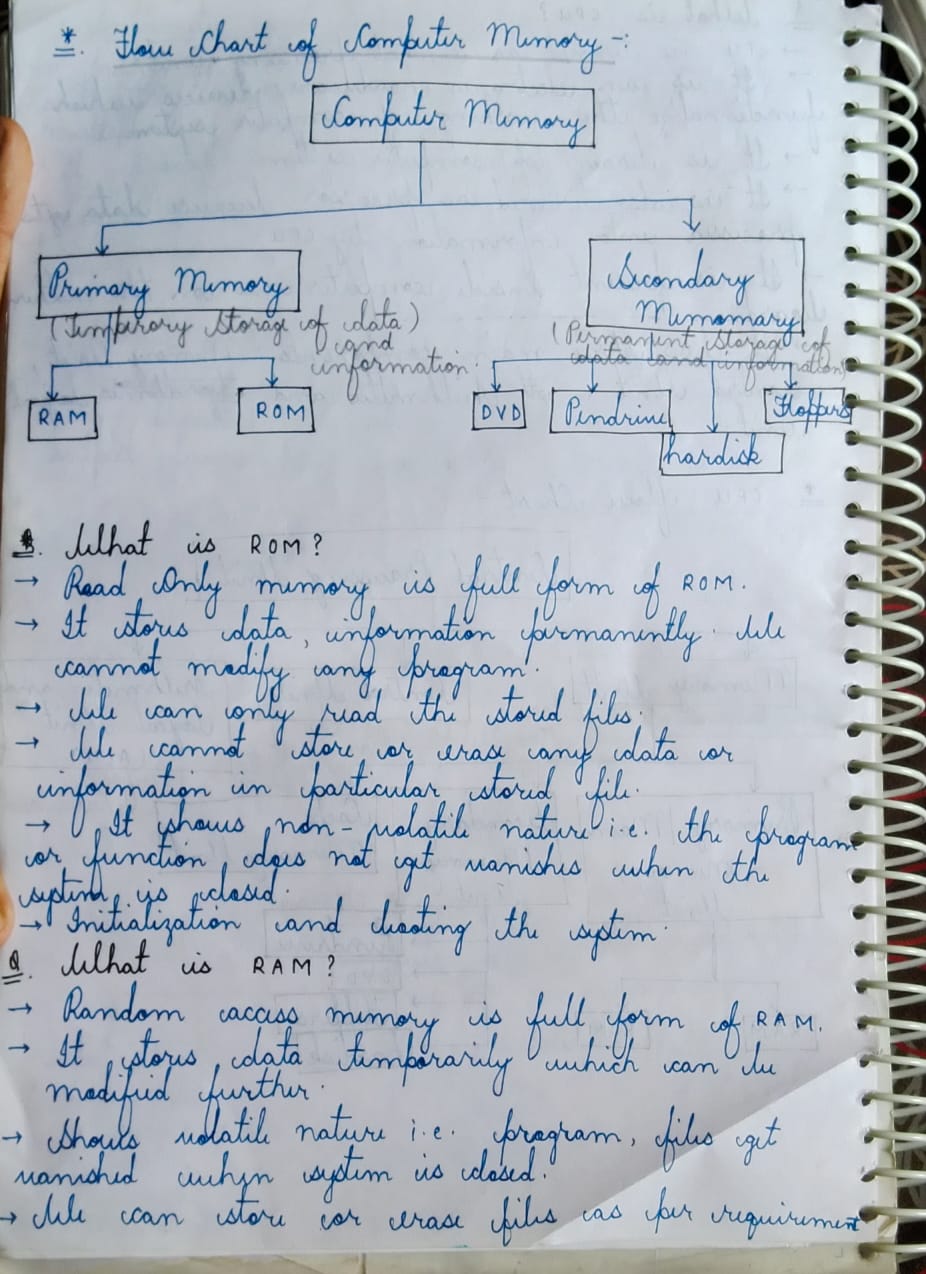 *. Flow Chart of Computer Memory -:
Computer Memory
Primary Memory
(Temprory Storage of data)
and
information.
RAM
ROM
Secondary
Memomary
(Permanent storage of
data and information)
DVD
Pendrive
hardisk
Floppers
What is ROM?
→ Read Only memory is full form of ROM.
→ It stores data, information permanently. We
cannot modify any program.
→ We can only read the stored files.
→ We cannot store or erase any data or
information in particular stored file.
→ It shows non-volatile nature i.e. the program
or function does not get vanishes when the
system is closed.
→ Initialization and booting the system.
Q. What is RAM?
→ Random access memory is full form of RAM.
→ It stores data temporarily which can be
modified further.
→ Shows volatile nature i.e. program, files get
vanished when system is closed.
→ We can store or erase files as per requirement